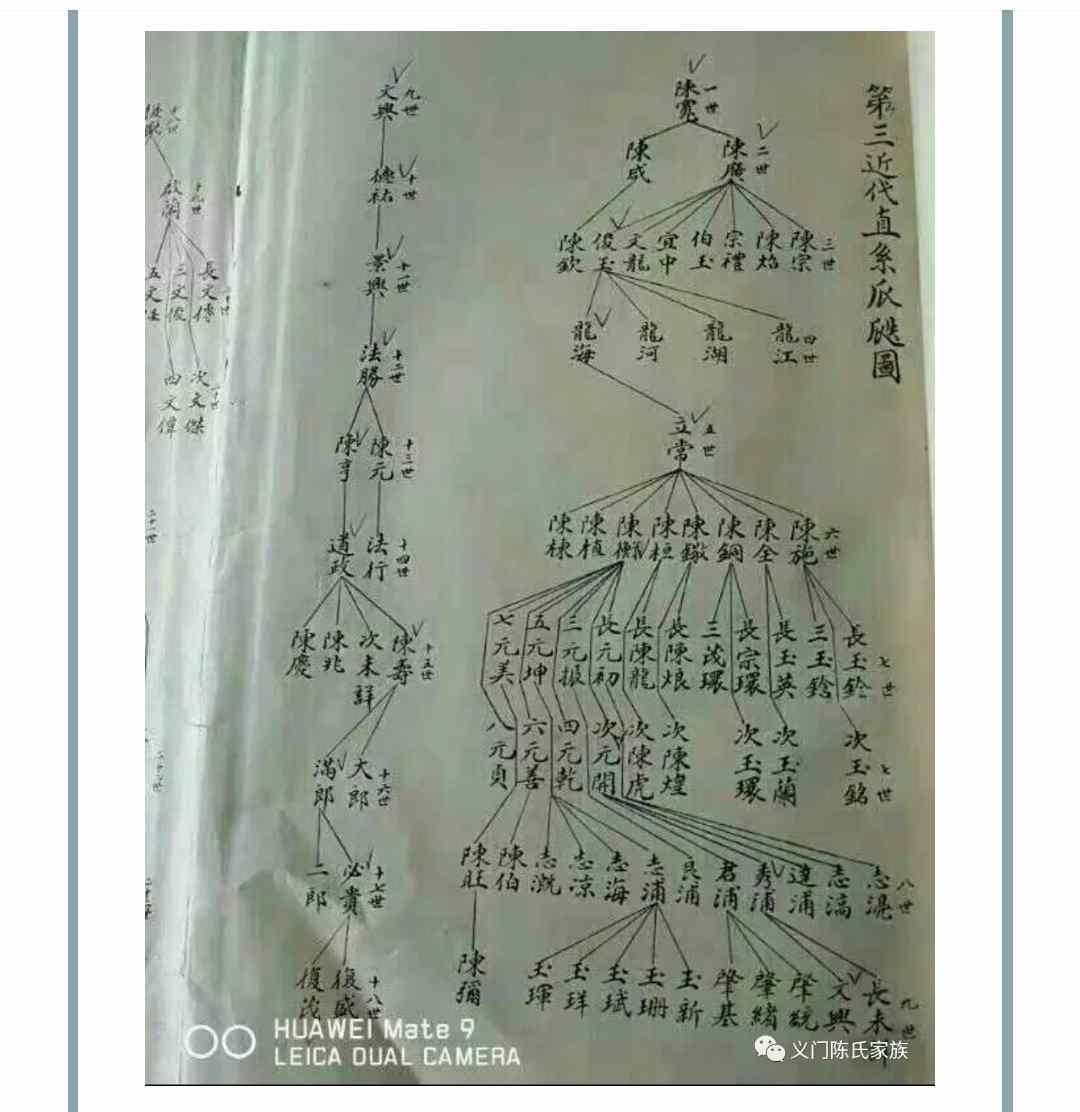 第三近代直系瓜瓞圖
一世
陳寬
二世
陳廣
陳咸
三世
陳宗
陳焰
宗禮
伯玉
宜中
文龍
俊玉
陳欽
四世
龍江
龍湖
龍河
龍海
五世
立常
六世
陳施
陳全
陳鋼
陳鏾
陳桓
陳植
陳棟
七世
長玉鈴
三玉鎗
長玉英
長宗環
三茂環
長陳烺
長陳龍
長元初
三元振
五元坤
七元美
七世
次玉銘
次玉蘭
次玉環
次陳煌
次陳虎
次元開
四元乾
六元善
八元貞
八世
志滉
志滈
達浦
秀浦
君浦
良浦
志浦
志海
志凉
志溉
陳伯
陳旺
九世
長未
文興
肇統
肇緒
肇基
玉新
玉珊
玉珷
玉珜
玉琿
陳彌
九世
文興
十世
德祐
十一世
景興
十二世
法勝
十三世
陳元
陳亨
十四世
法行
道政
十五世
陳壽
次未詳
陳兆
陳慶
十六世
大郎
滿郎
十七世
必貴
二郎
十八世
復盛
復茂
十八世
十九世
啟蘭
長文傳
三文俊
五文
次文傑
四文偉
HUAWEI Mate 9
LEICA DUAL CAMERA
义门陈氏家族